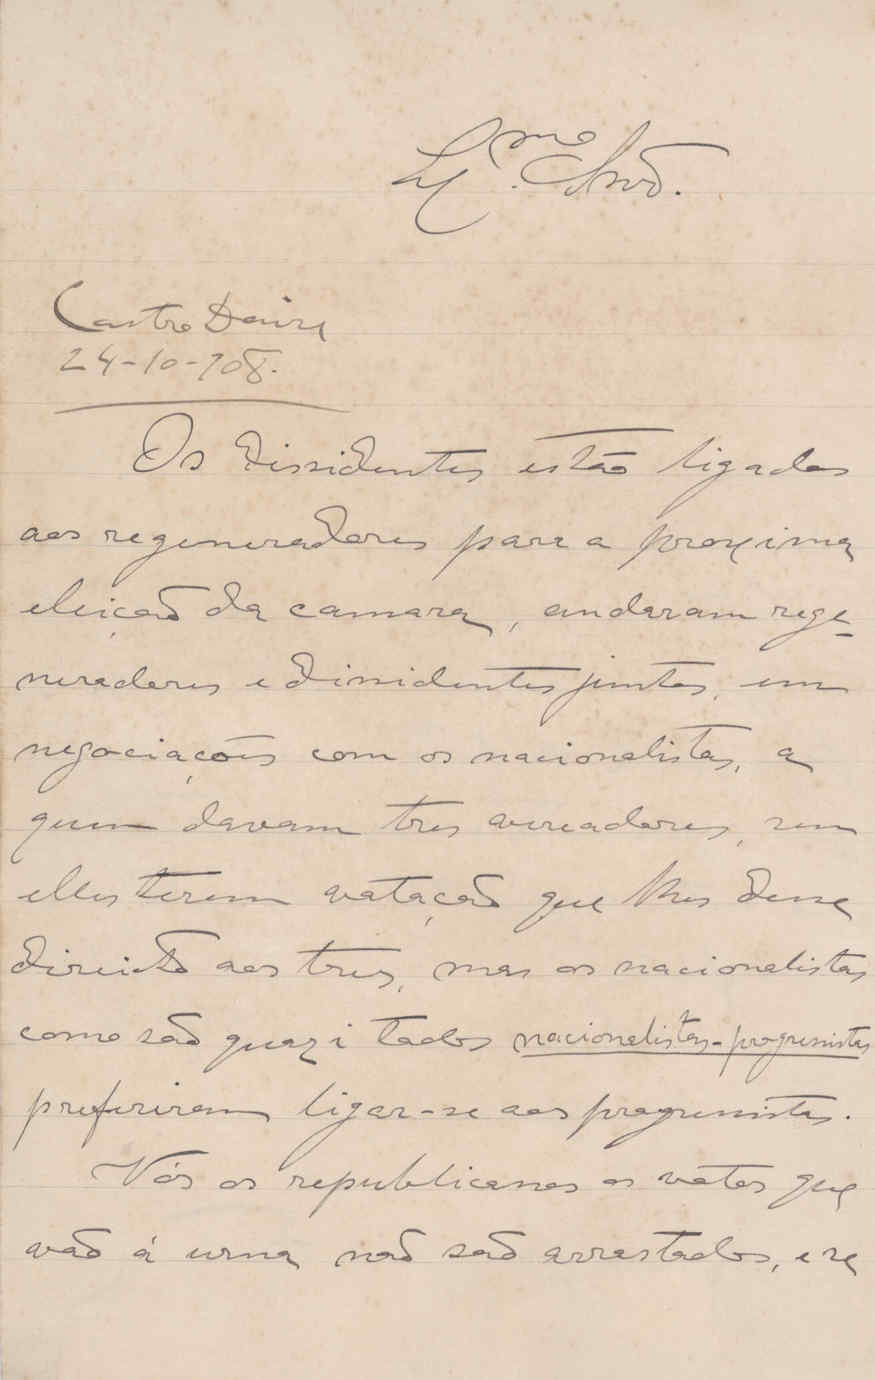 Ex.mo Snr.
Castro Daire
24-10-908.
Os dissidentes estão ligados
aos regeneradores para a proxima
eleição da camara, andaram rege-
neradores e dissidentes juntos, em
negociações com os nacionalistas, a
quem davam tres vereadores, sem
elles terem votação que lhes desse
direito aos tres, mas os nacionalistas
como são quazi todos nacionalistas-progressistas
preferiram ligar-se aos progressistas.
Nós os republicanos os votos que
vão á urna não são arrastados, e se